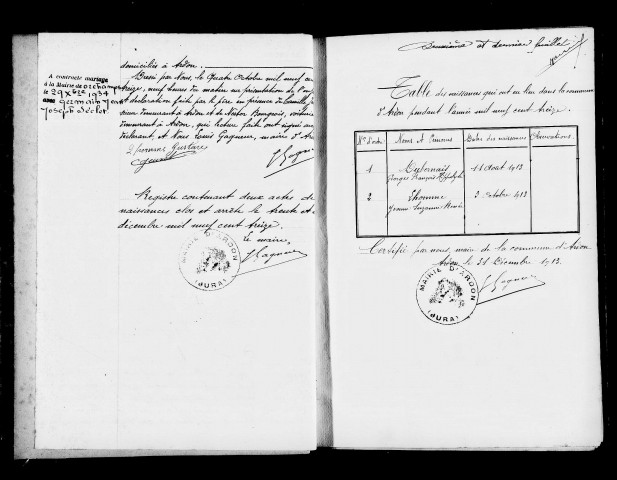 domiciliés à Ardon.
Dressé par Nous, le Quatre Octobre mil neuf cent
treize, neuf heures du matin sur présentation de l'enfant
et déclaration faite par le père en présence de Camille
demeurant à Ardon et de Nestor Bourgeois,
demeurant à Ardon, qui lecture faite ont signé
déclarant, et Nous Louis Gagneur, maire d'Ardon
A contracté mariage
à la Mairie de Orchamps
le 29 Xbre 1934
avec Germain
Joseph
Registre contenant deux actes de
naissances clos et arrêté le trente et
décembre mil neuf cent treize.
Le maire,
L Gagneur
MAIRIE D'ARDON
(JURA)
Deuxième et dernier feuillet
Table des naissances qui ont eu lieu dans la commune
d'Ardon pendant l'année mil neuf cent treize.
Nos d'ordre Noms & Prénoms Dates des naissances Observations.
1 Georges François Hippolyte 11 Août 1913
2 Lhomme Yvonne Suzanne 3 Octobre 1913
Certifié par nous, maire de la commune d'Ardon
Ardon, le 31 Décembre 1913.
L Gagneur
MAIRIE D'ARDON
(JURA)